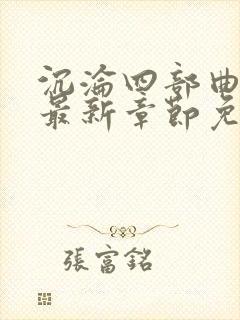 沉淪四部曲
最新章節免
張富銘